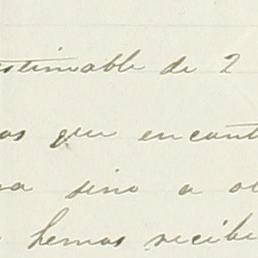 estimable de 2
os que encont
na sino a ot
hemos recibi